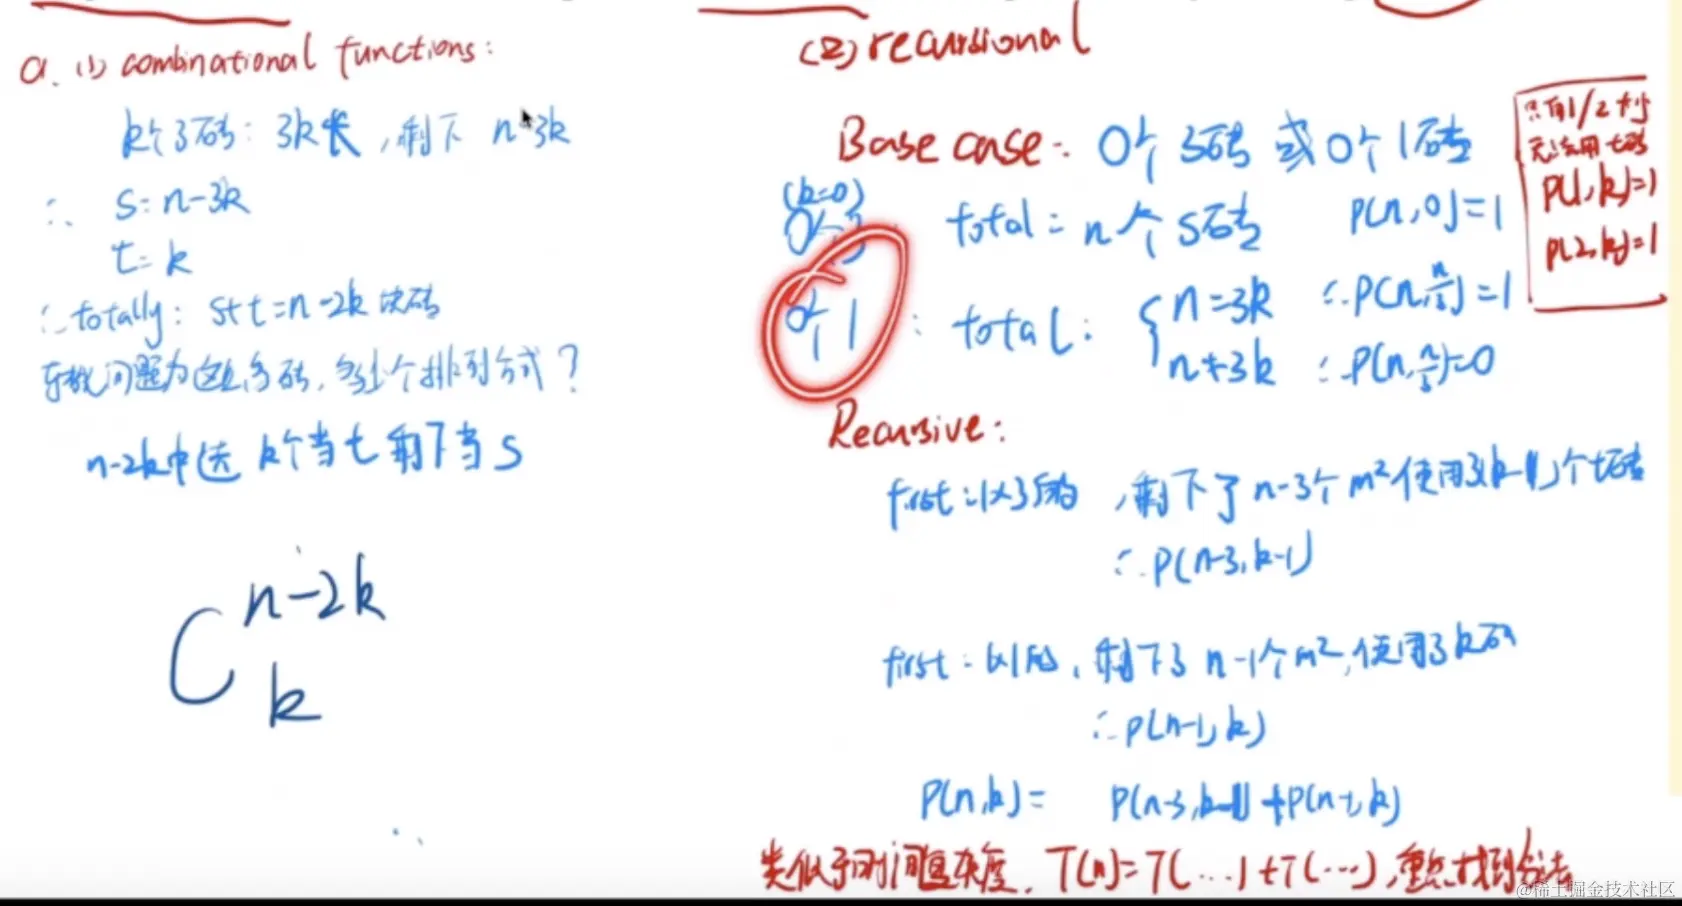 a. (1) combinational functions:
k个3砖: 3k长, 剩下 n-3k
∴ s=n-3k
t=k
∴ totally: s+t=n-2k 块砖
问题为这么多砖, 多少个排列方式?
n-2k中选 k个当t 剩下当s
C n-2k k
(2) recursional
Base case: 0个3砖 或 0个1砖
(k=0)
0个3 total = n个s砖 P(n,0)=1
0个1: total: { n=3k ∴P(n,n/3)=1
n≠3k ∴P(n,n/3)=0
只有1/2大小
无法用t砖
P(1,k)=1
P(2,k)=1
Recursive:
first: 1x3的, 剩下了 n-3个m² 使用了(k-1)个t砖
∴ P(n-3,k-1)
first: 1x1的, 剩下了 n-1个m², 使用了k砖
∴ P(n-1,k)
P(n,k)= P(n-3,k-1)+P(n-1,k)
类似于时间复杂度. T(n)=T(...)+T(...), 重点找到方法
@稀土掘金技术社区